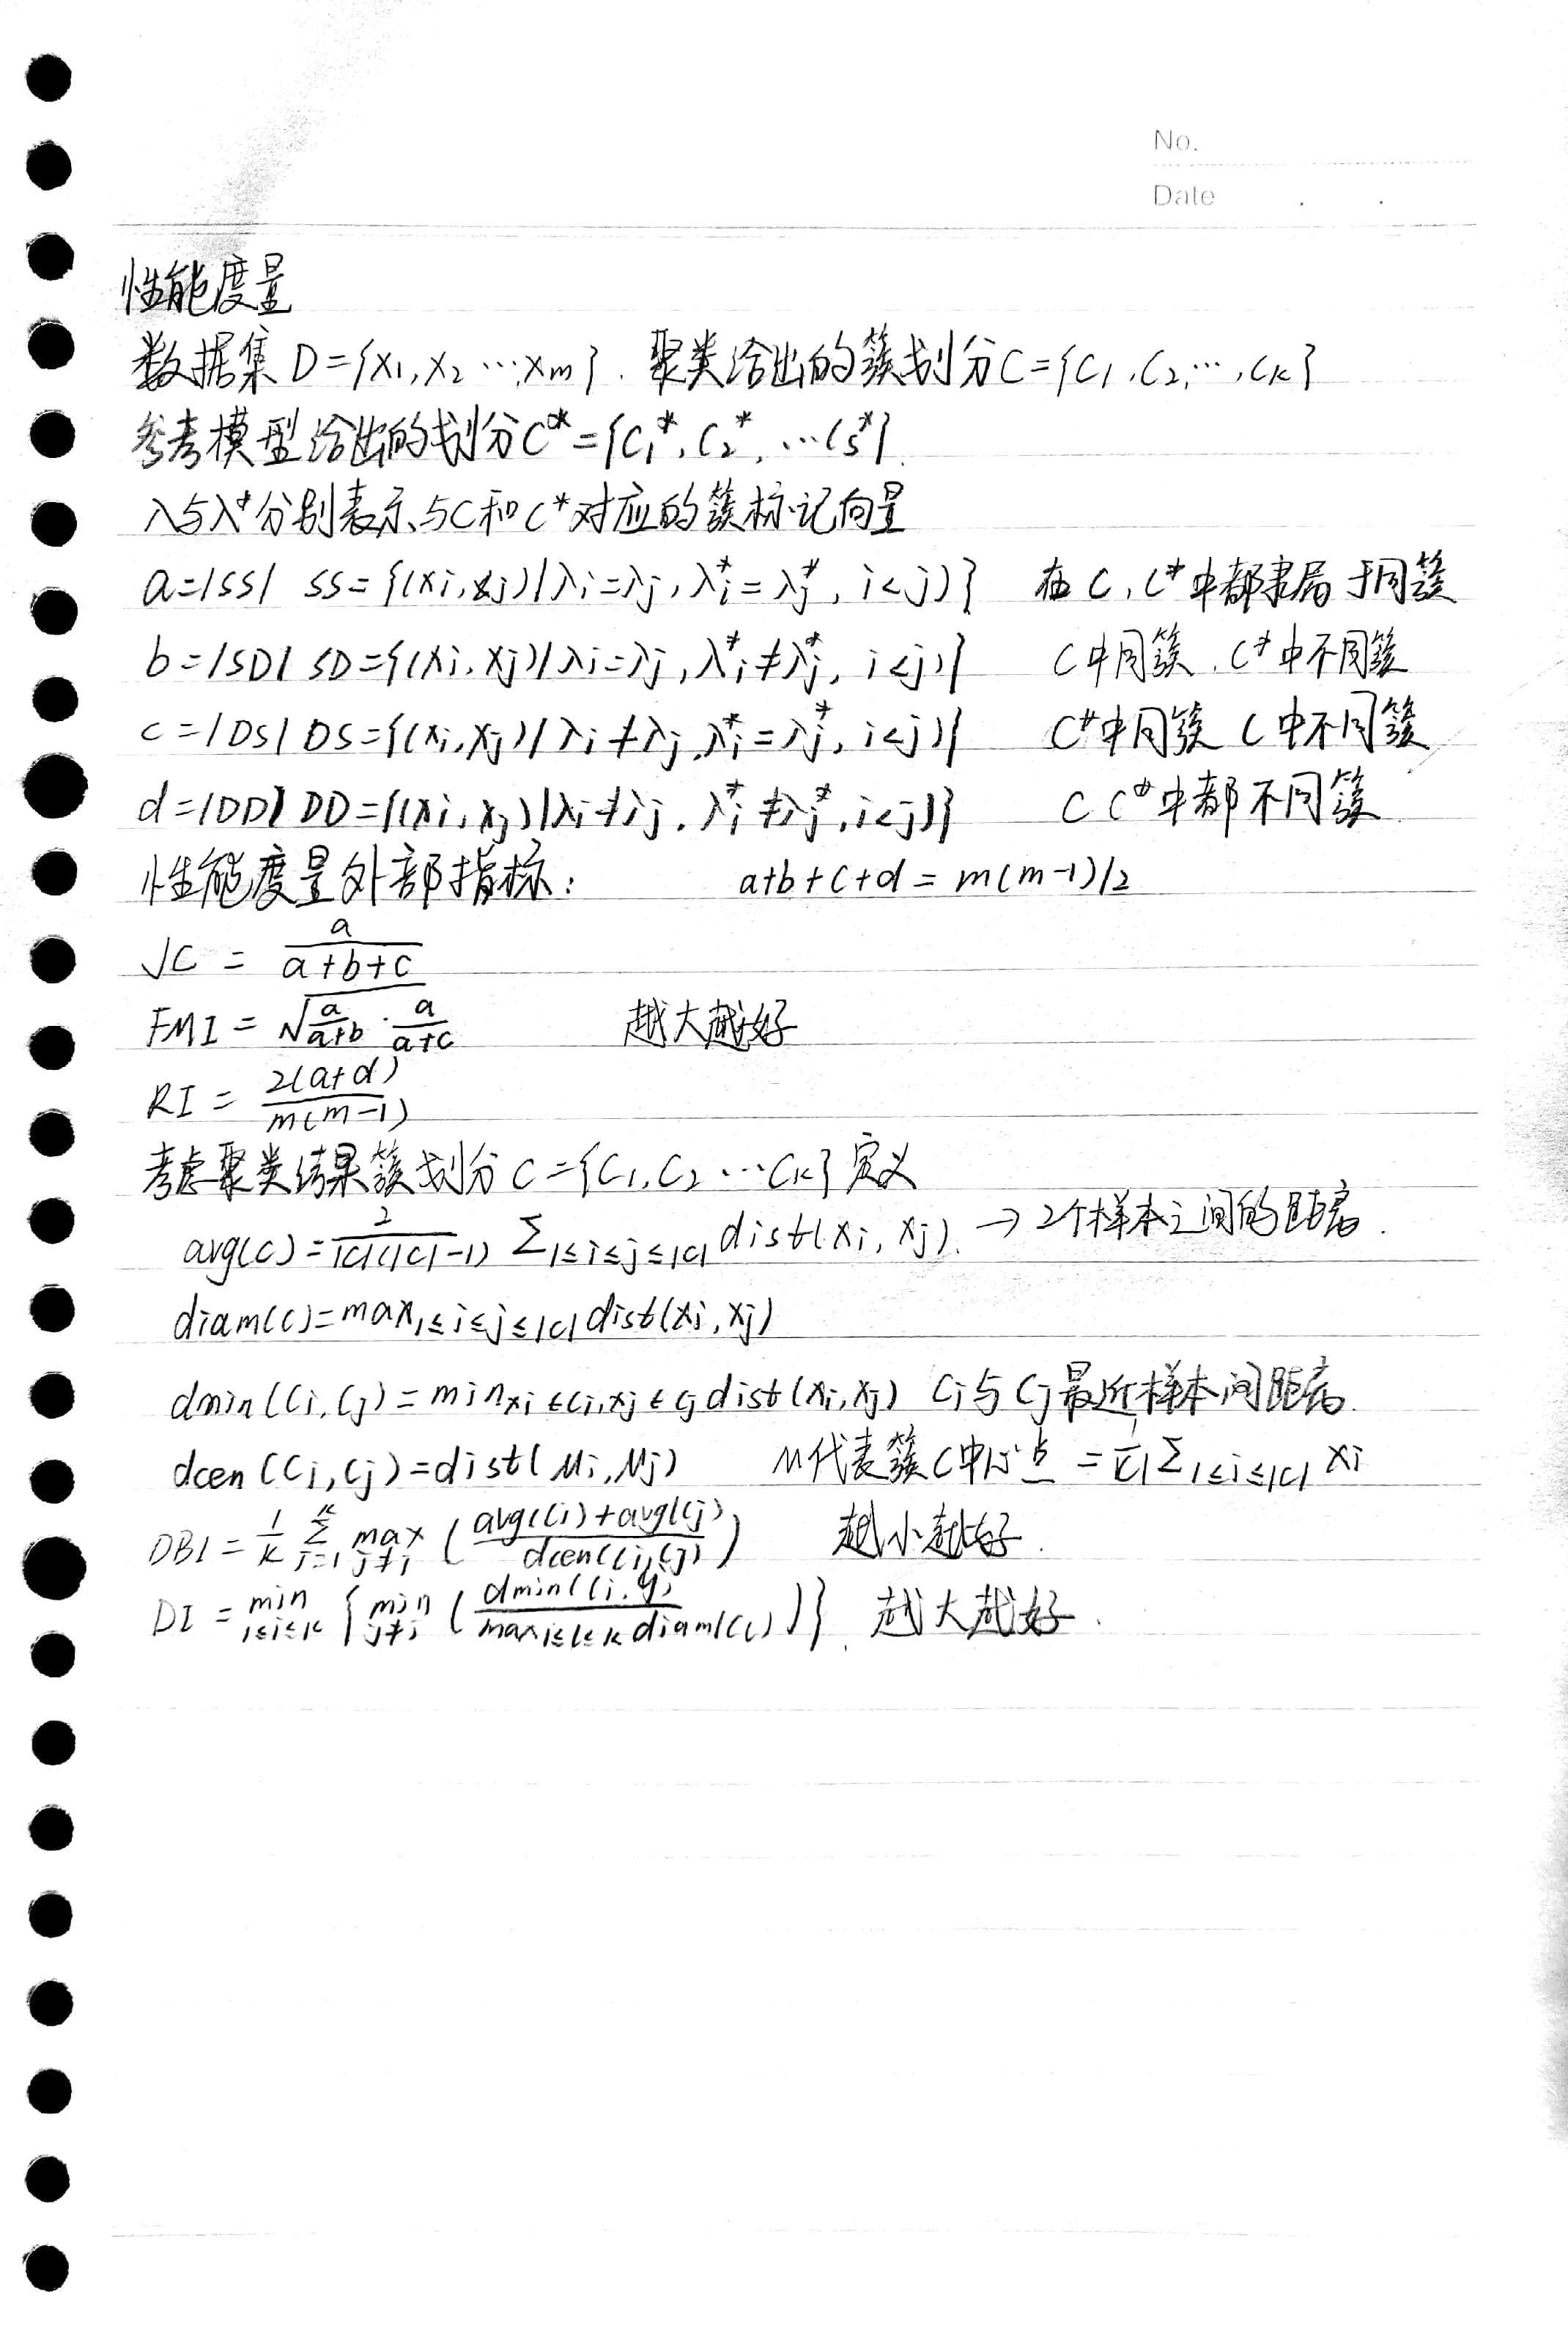 No.
Date
性能度量
数据集 D={x₁,x₂…,xₘ}. 聚类给出的簇划分C={C₁,C₂,…,Cₖ}
参考模型给出的划分C*={C₁*,C₂*,…Cₛ*}
λ与λ*分别表示与C和C*对应的簇标记向量
a=|SS| SS={(xᵢ,xⱼ)|λᵢ=λⱼ,λᵢ*=λⱼ*,i<j)} 在C,C*中都隶属于同簇
b=|SD| SD={(xᵢ,xⱼ)|λᵢ=λⱼ,λᵢ*≠λⱼ*,i<j)} C中同簇.C*中不同簇
c=|DS| DS={(xᵢ,xⱼ)|λᵢ≠λⱼ,λᵢ*=λⱼ*,i<j)} C*中同簇 C中不同簇
d=|DD| DD={(xᵢ,xⱼ)|λᵢ≠λⱼ,λᵢ*≠λⱼ*,i<j)} C C*中都不同簇
性能度量外部指标: a+b+c+d=m(m-1)/2
JC = a/(a+b+c)
FMI = √(a/(a+b)·a/(a+c)) 越大越好
RI = 2(a+d)/m(m-1)
考虑聚类结果簇划分C={C₁,C₂…Cₖ}定义
avg(C)=2/(|C|(|C|-1)) Σ1≤i≤j≤|C| dist(xᵢ,xⱼ). →2个样本之间的距离.
diam(C)=max1≤i≤j≤|C| dist(xᵢ,xⱼ)
dmin(Cᵢ,Cⱼ)=min xᵢ∈Cᵢ,xⱼ∈Cⱼ dist(xᵢ,xⱼ) Cᵢ与Cⱼ最近样本间距离.
dcen(Cᵢ,Cⱼ)=dist(μᵢ,μⱼ) μ代表簇C中心点=1/|C| Σ1≤i≤|C| xᵢ
DBI = 1/k Σᵢ₌₁ᵏ max j≠i ((avg(Cᵢ)+avg(Cⱼ))/dcen(Cᵢ,Cⱼ)) 越小越好.
DI = min 1≤i≤k {min j≠i (dmin(Cᵢ,Cⱼ)/max1≤l≤k diam(Cₗ))}. 越大越好.